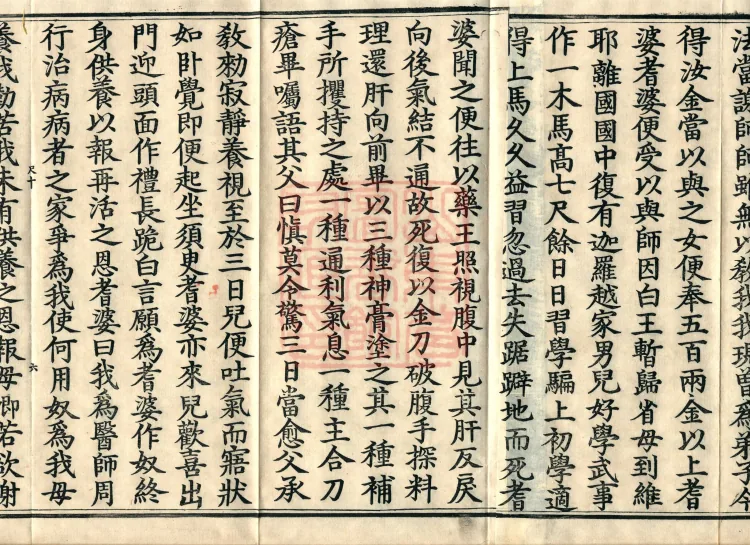 法當謝師師雖無以教我我現曾爲弟子今
得汝金當以與之女便奉五百兩金以上耆
婆耆婆便受以與師因白王暫歸省母到維
耶離國國中復有迦羅越家男兒好學武事
作一木馬髙七尺餘日日習學騙上初學適
得上馬久久益習忽過去失踞躃地而死耆
婆聞之便往以藥王照視腹中見其肝反戾
向後氣結不通故死復以金刀破腹手探料
理還肝向前畢以三種神膏塗之其一種補
手所攫持之處一種通利氣息一種主合刀
瘡畢囑語其父曰慎莫令驚三日當愈父承
教勑寂靜養視至於三日兒便吐氣而寤狀
如卧覺即便起坐須臾耆婆亦來兒歡喜出
門迎頭面作禮長跪白言願爲耆婆作奴終
身供養以報再活之恩耆婆曰我爲醫師周
行治病病者之家爭爲我使何用奴爲我母
尺十 六
養我勤苦我未有供養之恩報母卿若欲謝